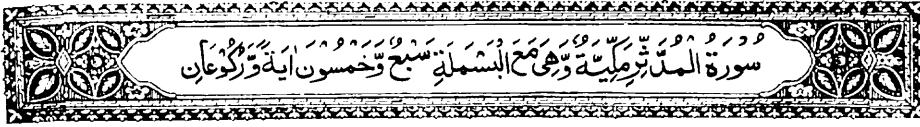 سُورَةُ الْمُدَّثِّرِ مَكِّيَّةٌ وَّهِىَ مَعَ الْبَسْمَلَةِ سَبْعٌ وَّخَمْسُونَ اٰيَةً وَّرُكُوْعَانِ